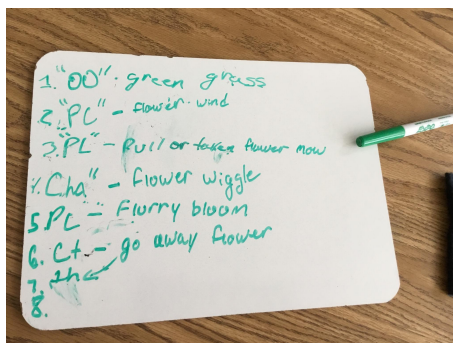 1. "OO" : green grass
2. "PC" - flower wind
3. "PL" - Pull or taken flower now
4. Cha" - flower wiggle
5. PC - Flurry bloom
6. Ct - go away flower
7. th
8.